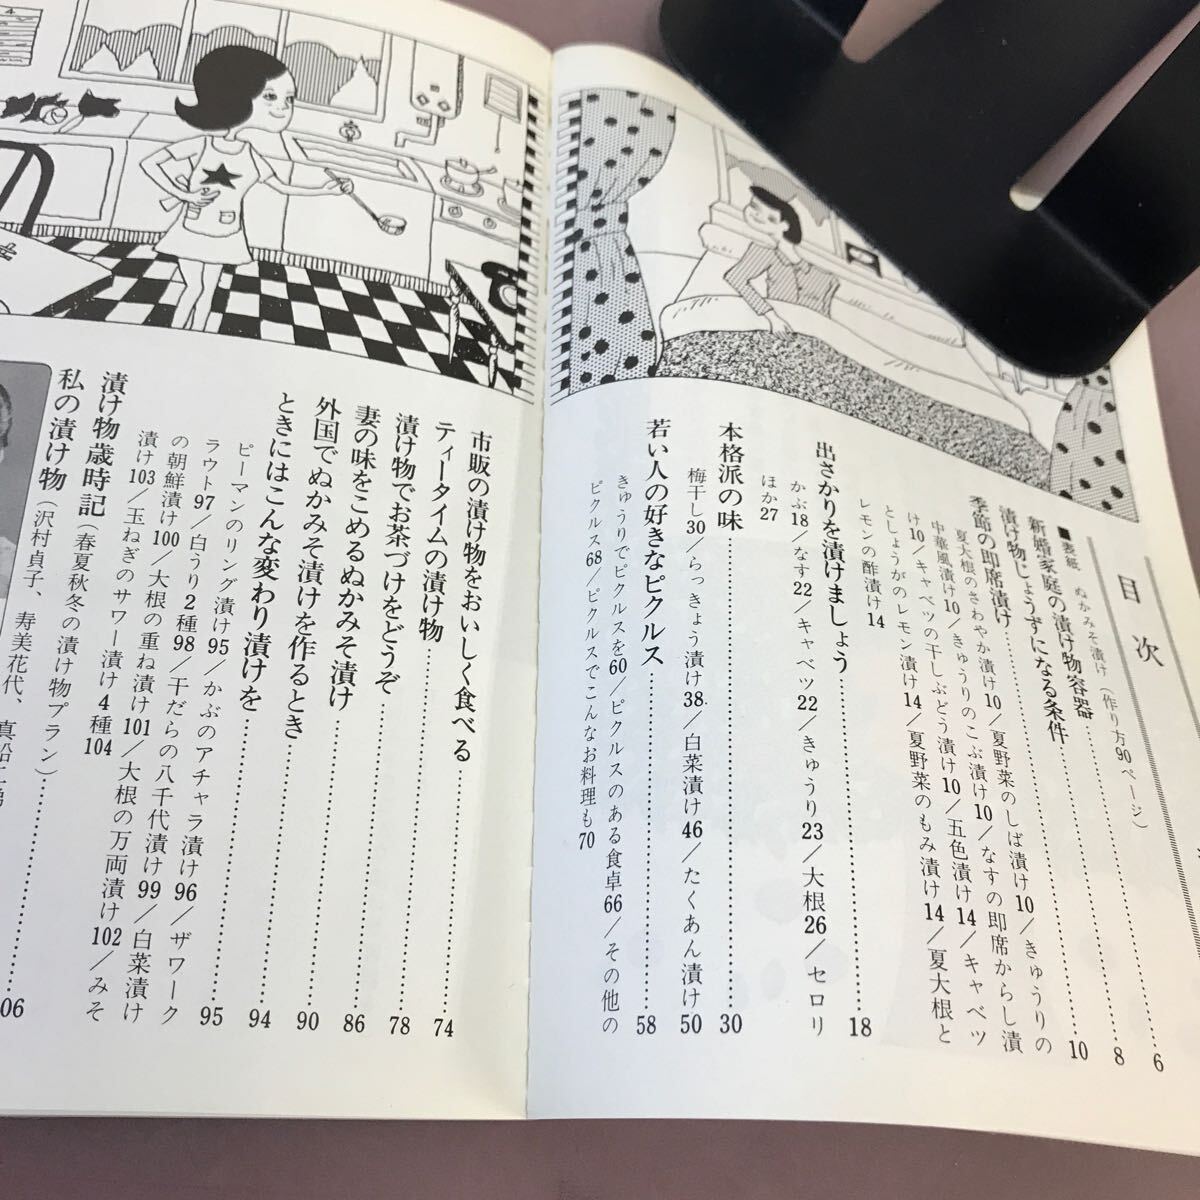 目次
■表紙　ぬかみそ漬け（作り方90ページ）
新婚家庭の漬け物容器……6
漬け物じょうずになる条件……8
季節の即席漬け……10
夏大根のさわやか漬け10／夏野菜のしば漬け10／きゅうりの
中華風漬け10／きゅうりのこぶ漬け10／なすの即席からし漬
け10／キャベツの干しぶどう漬け10／五色漬け14／キャベツ
としょうがのレモン漬け14／夏野菜のもみ漬け14／夏大根と
レモンの酢漬け14
出さかりを漬けましょう……18
かぶ18／なす22／キャベツ22／きゅうり23／大根26／セロリ
ほか27
本格派の味……30
梅干し30／らっきょう漬け38／白菜漬け46／たくあん漬け50
若い人の好きなピクルス……58
きゅうりでピクルスを60／ピクルスのある食卓66／その他の
ピクルス68／ピクルスでこんなお料理も70
市販の漬け物をおいしく食べる
ティータイムの漬け物……74
漬け物でお茶づけをどうぞ……78
妻の味をこめるぬかみそ漬け……86
外国でぬかみそ漬けを作るとき……90
ときにはこんな変わり漬けを……94
ピーマンのリング漬け95／かぶのアチャラ漬け96／ザワーク……95
ラウト97／白うり2種98／干だらの八千代漬け99／白菜漬け
の朝鮮漬け100／大根の重ね漬け101／大根の万両漬け102／みそ
漬け103／玉ねぎのサワー漬け4種104
漬け物歳時記（春夏秋冬の漬け物プラン）……06
私の漬け物（沢村貞子、寿美花代、真船